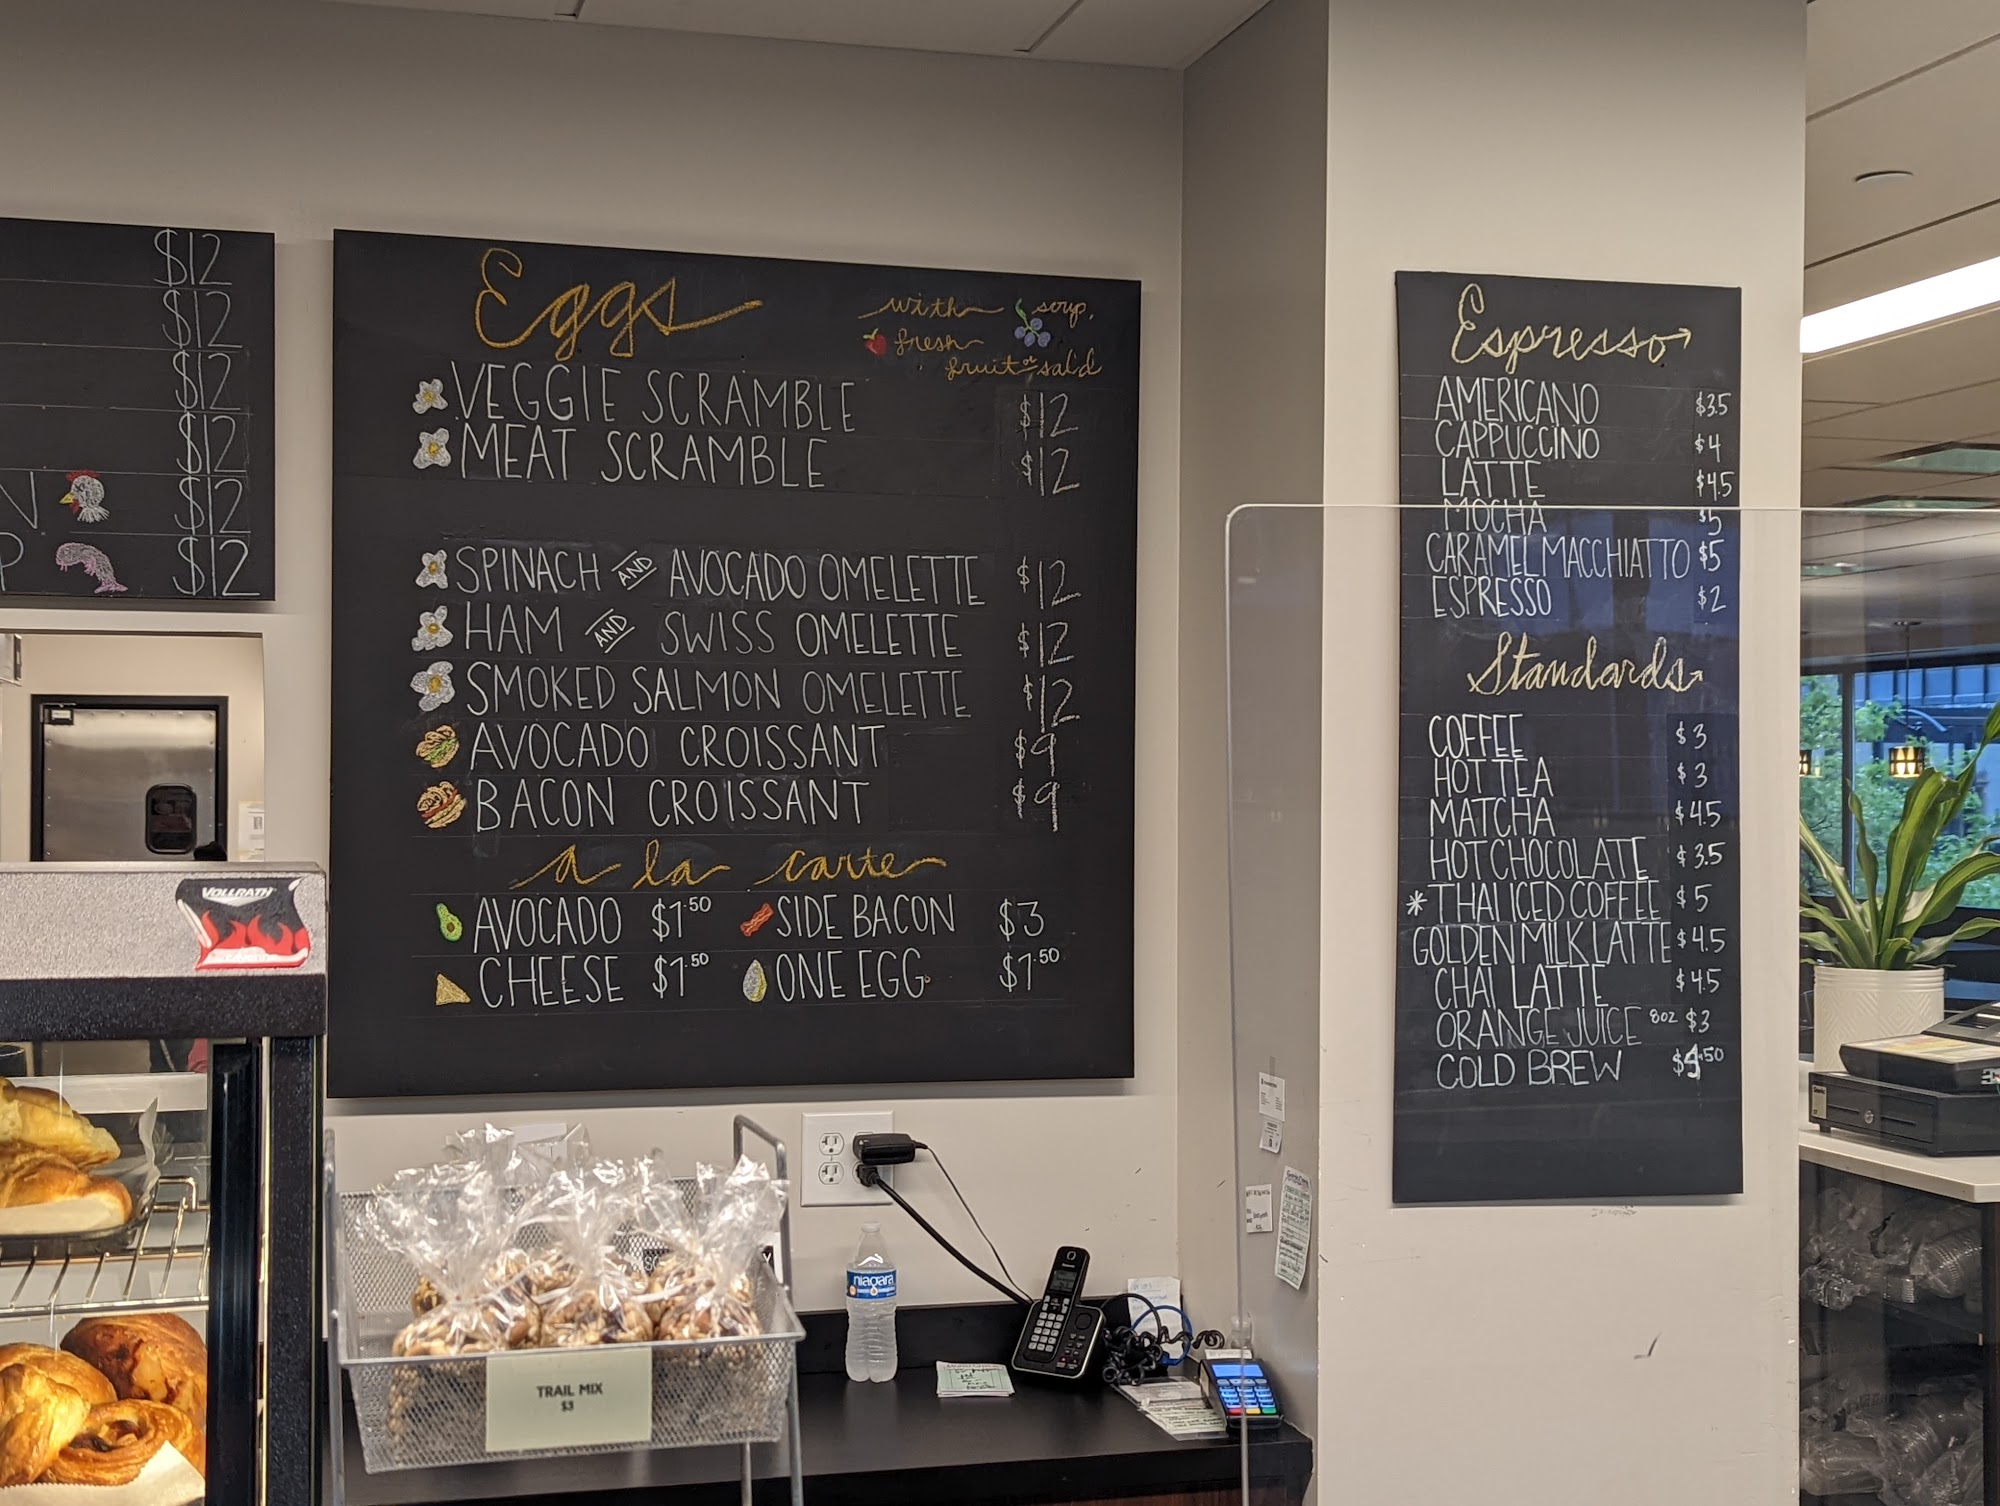 $12
$12
$12
$12
$12
$12
Eggs
with soup,
fresh
fruit or sal'd
VEGGIE SCRAMBLE $12
MEAT SCRAMBLE $12
SPINACH AND AVOCADO OMELETTE $12
HAM AND SWISS OMELETTE $12
SMOKED SALMON OMELETTE $12
AVOCADO CROISSANT $9
BACON CROISSANT $9
a la carte
AVOCADO $1.50 SIDE BACON $3
CHEESE $1.50 ONE EGG $1.50
Espresso
AMERICANO $3.5
CAPPUCCINO $4
LATTE $4.5
MOCHA $5
CARAMEL MACCHIATTO $5
ESPRESSO $2
Standards
COFFEE $3
HOT TEA $3
MATCHA $4.5
HOT CHOCOLATE $3.5
* THAI ICED COFFEE $5
GOLDEN MILK LATTE $4.5
CHAI LATTE $4.5
ORANGE JUICE 8OZ $3
COLD BREW
VOLLRATH
TRAIL MIX
$3
niagara